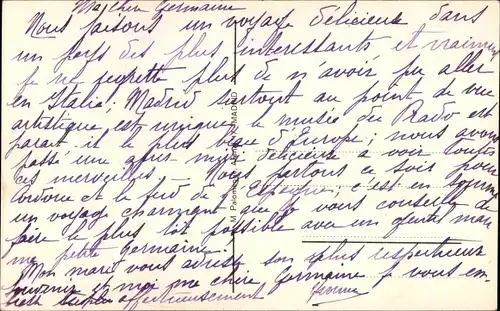 Ma chère Germaine
Nous faisons un voyage délicieux dans
un pays des plus interessants et vraiment
je ne regrette plus de n'avoir pu aller
en Italie; Madrid surtout au point de vue
artistique est unique le musée du Prado est
parait-il le plus beau d'Europe; nous avons
passé une après midi délicieuse a voir toutes
ces merveilles — Nous partons ce soir pour
Cordoue et le sud de l'Espagne, c'est en somme
un voyage charmant que je vous conseille de
faire le plus tôt possible avec un gentil mari
ma petite Germaine.
Mon mari vous adresse son plus respectueux
souvenir et moi ma chère Germaine je vous em-
bien affectueusement
MADRID